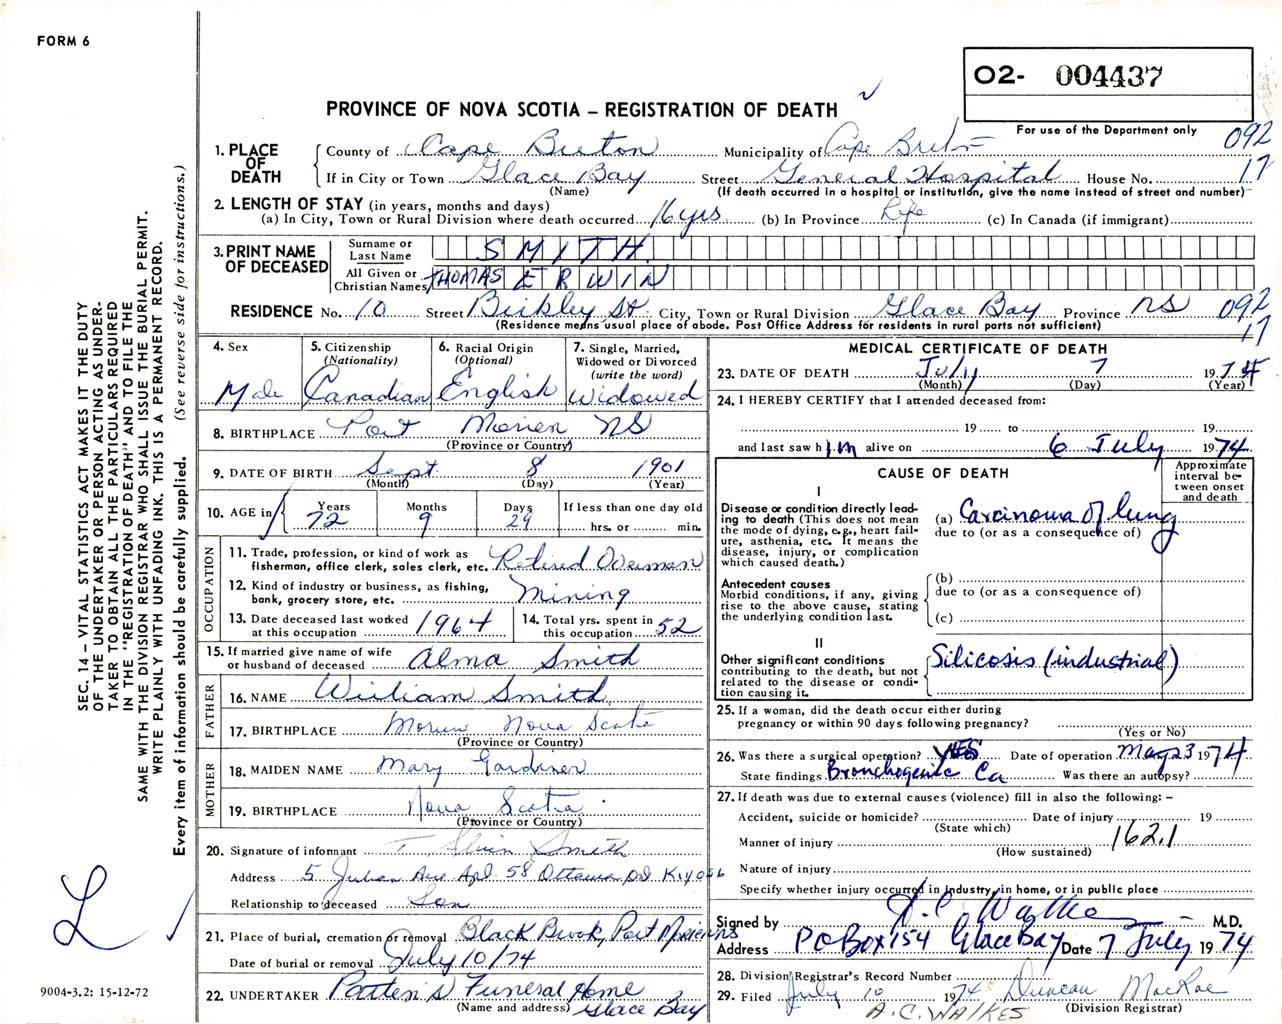 FORM 6
O2- 004437
PROVINCE OF NOVA SCOTIA – REGISTRATION OF DEATH
For use of the Department only
092
17
1. PLACE OF DEATH
County of Cape Breton Municipality of Cape Breton
If in City or Town Glace Bay Street General Hospital House No.
(Name) (If death occurred in a hospital or institution, give the name instead of street and number)
2. LENGTH OF STAY (in years, months and days)
(a) In City, Town or Rural Division where death occurred 16 yrs (b) In Province Life (c) In Canada (if immigrant)
3. PRINT NAME OF DECEASED
Surname or Last Name SMITH
All Given or Christian Names THOMAS ERWIN
RESIDENCE No. 10 Street Birkley St. City, Town or Rural Division Glace Bay Province NS 092
17
(Residence means usual place of abode. Post Office Address for residents in rural parts not sufficient)
4. Sex Male
5. Citizenship (Nationality) Canadian
6. Racial Origin (Optional) English
7. Single, Married, Widowed or Divorced (write the word) Widowed
8. BIRTHPLACE Port Morien NS
(Province or Country)
9. DATE OF BIRTH Sept. 8 1901
(Month) (Day) (Year)
10. AGE in Years Months Days If less than one day old
72 9 29 hrs. or min.
OCCUPATION
11. Trade, profession, or kind of work as fisherman, office clerk, sales clerk, etc. Retired Overman
12. Kind of industry or business, as fishing, bank, grocery store, etc. Mining
13. Date deceased last worked at this occupation 1964
14. Total yrs. spent in this occupation 52
15. If married give name of wife or husband of deceased Alma Smith
FATHER
16. NAME William Smith
17. BIRTHPLACE Morien Nova Scotia
(Province or Country)
MOTHER
18. MAIDEN NAME Mary Gardiner
19. BIRTHPLACE Nova Scotia
(Province or Country)
20. Signature of informant T Smith
Address 5 Julian Ave Apt 58 Ottawa Ont
Relationship to deceased Son
21. Place of burial, cremation or removal Black Brook, Port Morien NS
Date of burial or removal July 10/74
22. UNDERTAKER Patten's Funeral Home
(Name and address) Glace Bay
MEDICAL CERTIFICATE OF DEATH
23. DATE OF DEATH July 7 1974
(Month) (Day) (Year)
24. I HEREBY CERTIFY that I attended deceased from:
19 to 19
and last saw him alive on 6 July 1974
CAUSE OF DEATH
Approximate interval between onset and death
I
Disease or condition directly leading to death (This does not mean the mode of dying, e.g., heart failure, asthenia, etc. It means the disease, injury, or complication which caused death.)
(a) Carcinoma of lung
due to (or as a consequence of)
Antecedent causes
Morbid conditions, if any, giving rise to the above cause, stating the underlying condition last.
(b)
due to (or as a consequence of)
(c)
II
Other significant conditions contributing to the death, but not related to the disease or condition causing it.
Silicosis (industrial)
25. If a woman, did the death occur either during pregnancy or within 90 days following pregnancy?
(Yes or No)
26. Was there a surgical operation? YES Date of operation May 23 1974
State findings Bronchogenic Ca Was there an autopsy?
27. If death was due to external causes (violence) fill in also the following: –
Accident, suicide or homicide? Date of injury 19
(State which)
Manner of injury 162.1
(How sustained)
Nature of injury
Specify whether injury occurred in industry, in home, or in public place
Signed by A.C. Walkes M.D.
Address PO Box 154 Glace Bay Date 7 July 1974
28. Division Registrar's Record Number
29. Filed July 10 1974 Duncan MacRae
(Division Registrar)
A.C. WALKES
SEC. 14 – VITAL STATISTICS ACT MAKES IT THE DUTY
OF THE UNDERTAKER OR PERSON ACTING AS UNDER-
TAKER TO OBTAIN ALL THE PARTICULARS REQUIRED
IN THE "REGISTRATION OF DEATH" AND TO FILE THE
SAME WITH THE DIVISION REGISTRAR WHO SHALL ISSUE THE BURIAL PERMIT.
WRITE PLAINLY WITH UNFADING INK. THIS IS A PERMANENT RECORD.
Every item of information should be carefully supplied. (See reverse side for instructions.)
L
9004-3.2: 15-12-72